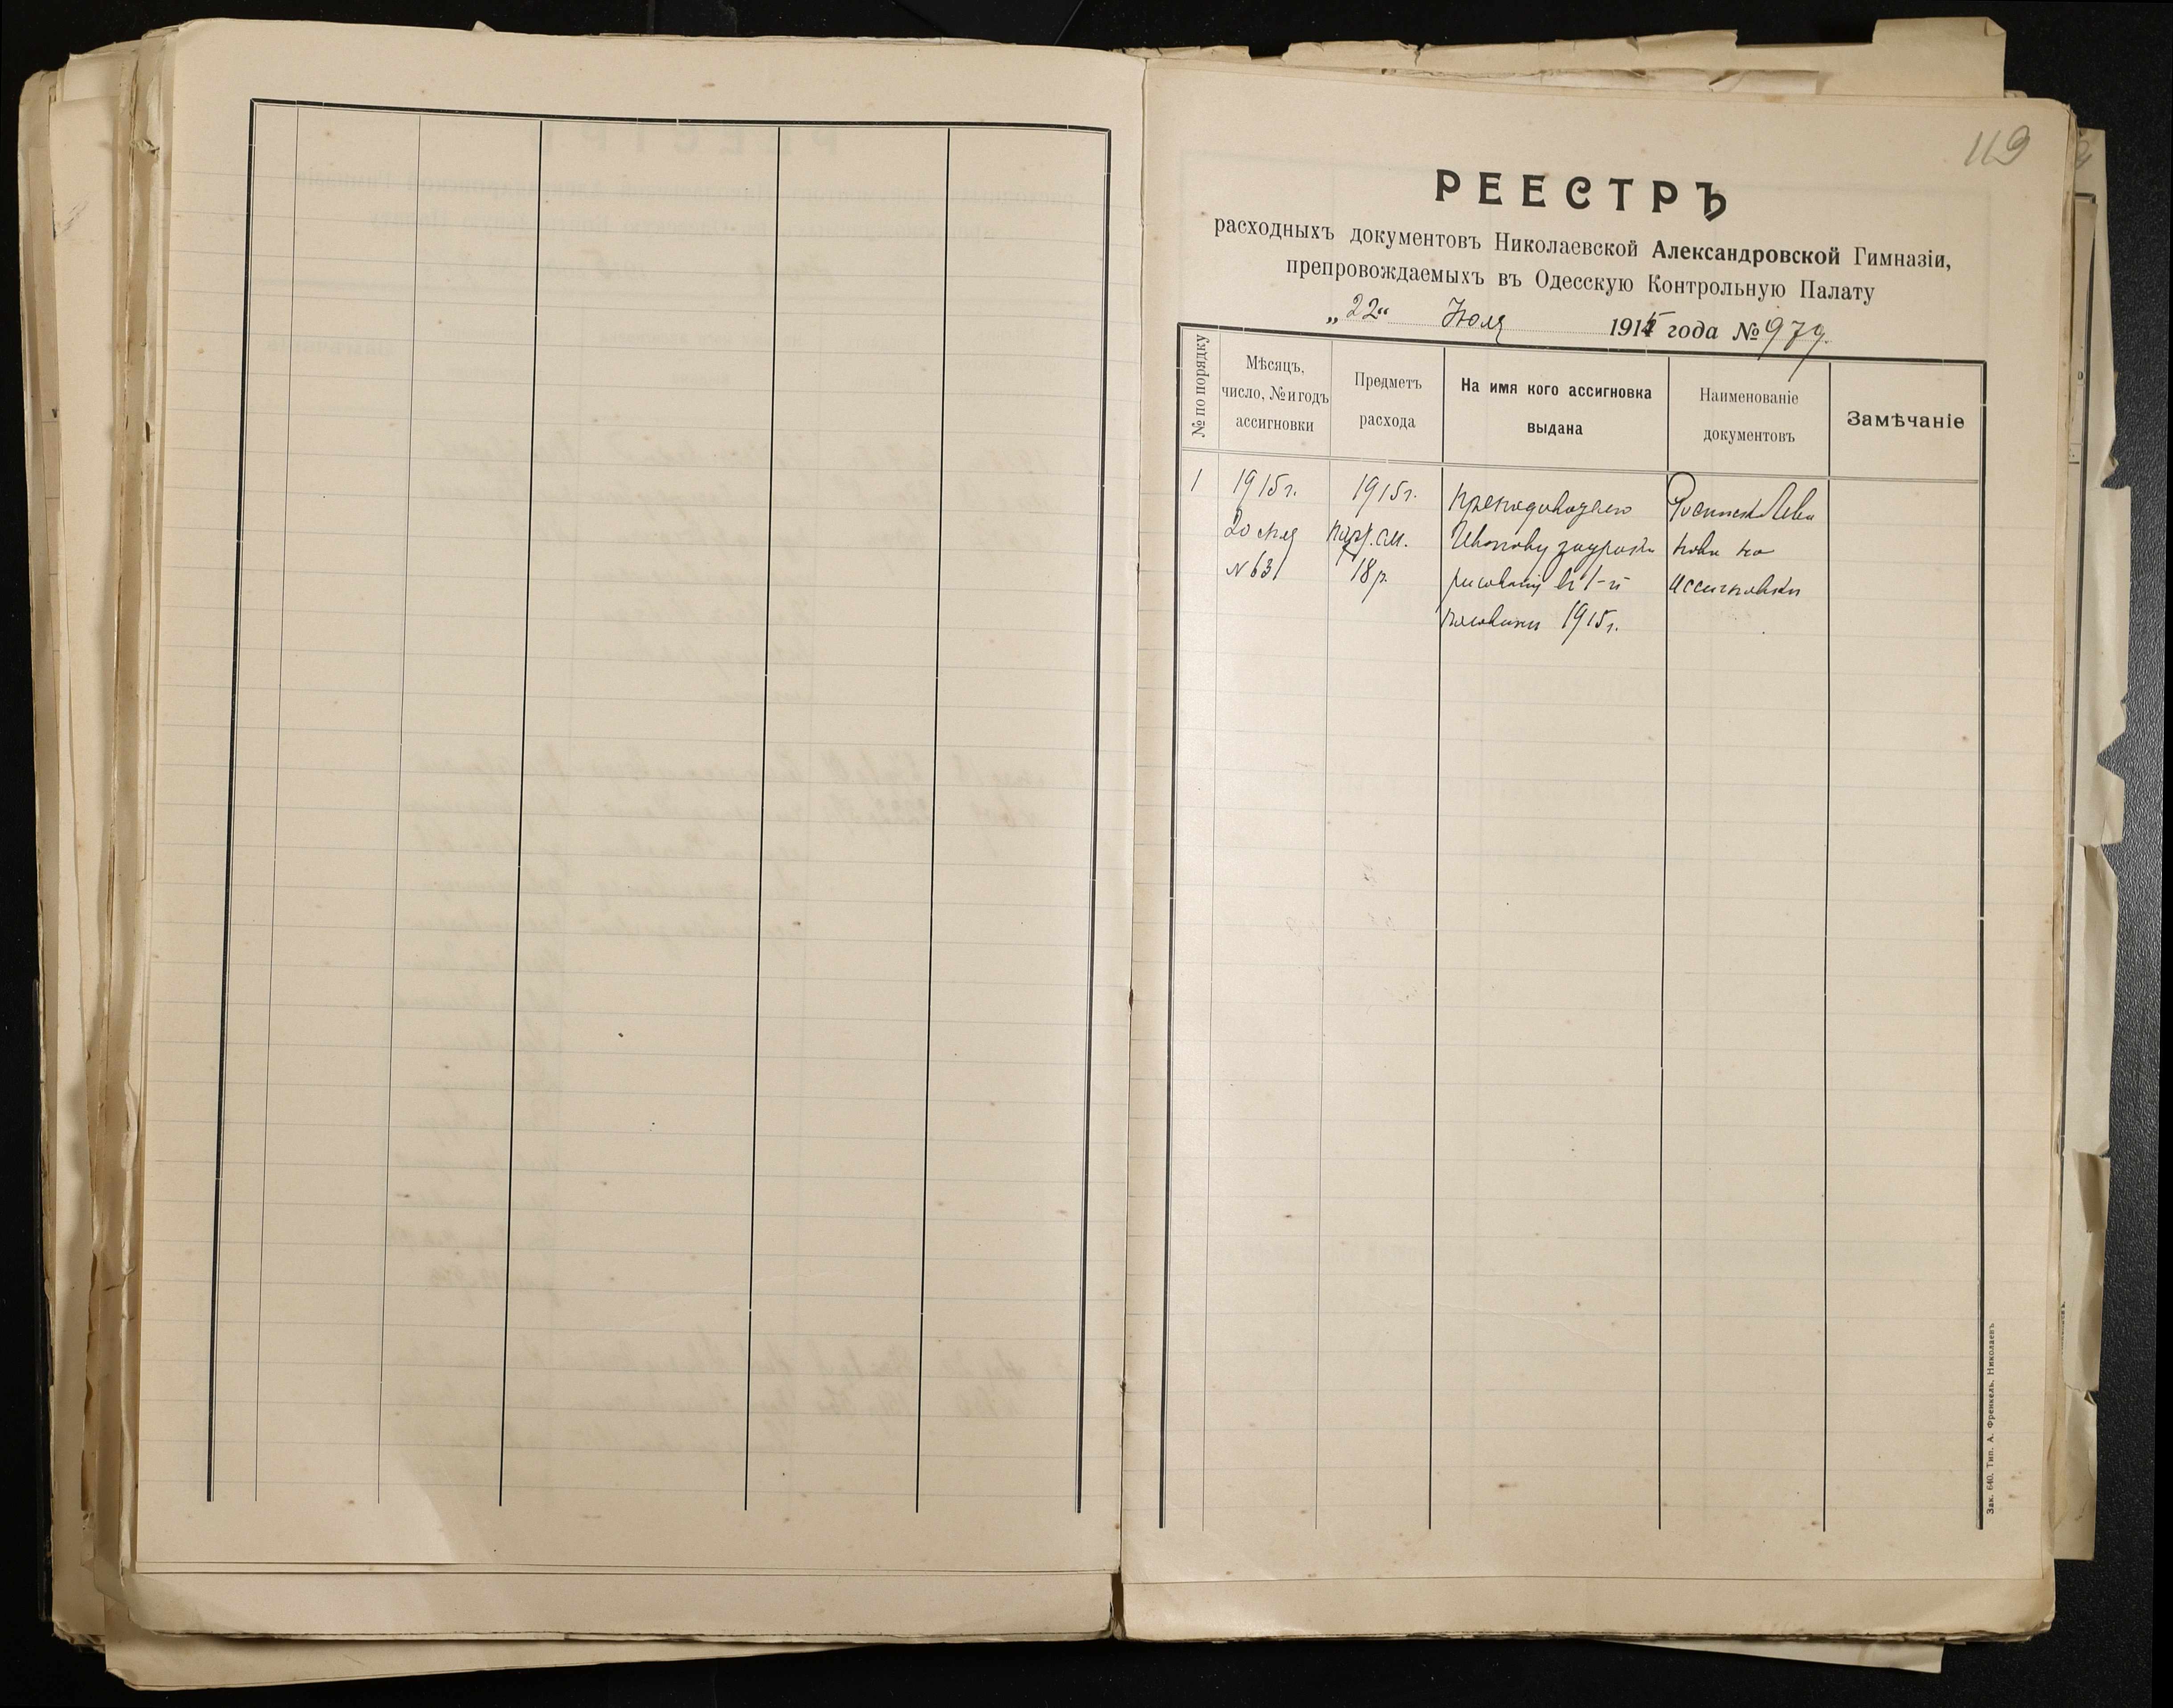 119
РЕЕСТРЪ
расходныхъ документовъ Николаевской Александровской Гимназіи,
препровождаемыхъ въ Одесскую Контрольную Палату
„22“ Июля 1915 года № 979.
№ по порядку
Мѣсяцъ,
число, № и годъ
ассигновки
Предметъ
расхода
На имя кого ассигновка
выдана
Наименованіе
документовъ
Замѣчаніе
1
1915г.
20
№ 631
1915г.
18 р.
Преподавателю
Иванову за уроки
рисованія въ 1-й
половинѣ 1915г.
Росписка
на
ассигновки
Зак. 640. Тип. А. Френкель. Николаевъ